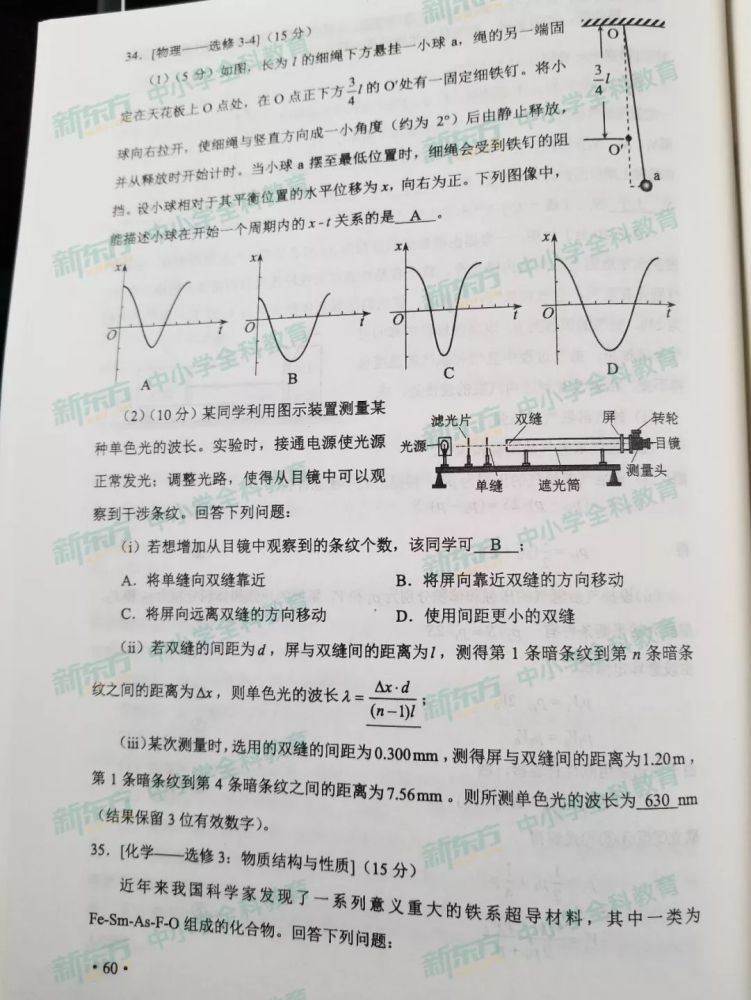 34. [物理——选修3-4]（15分）
（1）（5分）如图，长为l的细绳下方悬挂一小球a，绳的另一端固
定在天花板上O点处，在O点正下方3/4 l的O′处有一固定细铁钉。将小
球向右拉开，使细绳与竖直方向成一小角度（约为2°）后由静止释放，
并从释放时开始计时。当小球a摆至最低位置时，细绳会受到铁钉的阻
挡。设小球相对于其平衡位置的水平位移为x，向右为正。下列图像中，
能描述小球在开始一个周期内的x-t关系的是 A 。
O
3/4 l
O′
a
x
O
t
A
x
O
t
B
x
O
t
C
x
O
t
D
（2）（10分）某同学利用图示装置测量某
种单色光的波长。实验时，接通电源使光源
正常发光；调整光路，使得从目镜中可以观
察到干涉条纹。回答下列问题：
滤光片 双缝 屏 转轮
光源 目镜
测量头
单缝 遮光筒
（i）若想增加从目镜中观察到的条纹个数，该同学可 B ；
A．将单缝向双缝靠近 B．将屏向靠近双缝的方向移动
C．将屏向远离双缝的方向移动 D．使用间距更小的双缝
（ii）若双缝的间距为d，屏与双缝间的距离为l，测得第1条暗条纹到第n条暗条
纹之间的距离为Δx，则单色光的波长λ= Δx·d/(n−1)l ；
（iii）某次测量时，选用的双缝的间距为0.300mm，测得屏与双缝间的距离为1.20m，
第1条暗条纹到第4条暗条纹之间的距离为7.56mm。则所测单色光的波长为 630 nm
（结果保留3位有效数字）。
35. [化学——选修3：物质结构与性质]（15分）
近年来我国科学家发现了一系列意义重大的铁系超导材料，其中一类为
Fe-Sm-As-F-O组成的化合物。回答下列问题：
·60·
新东方 中小学全科教育